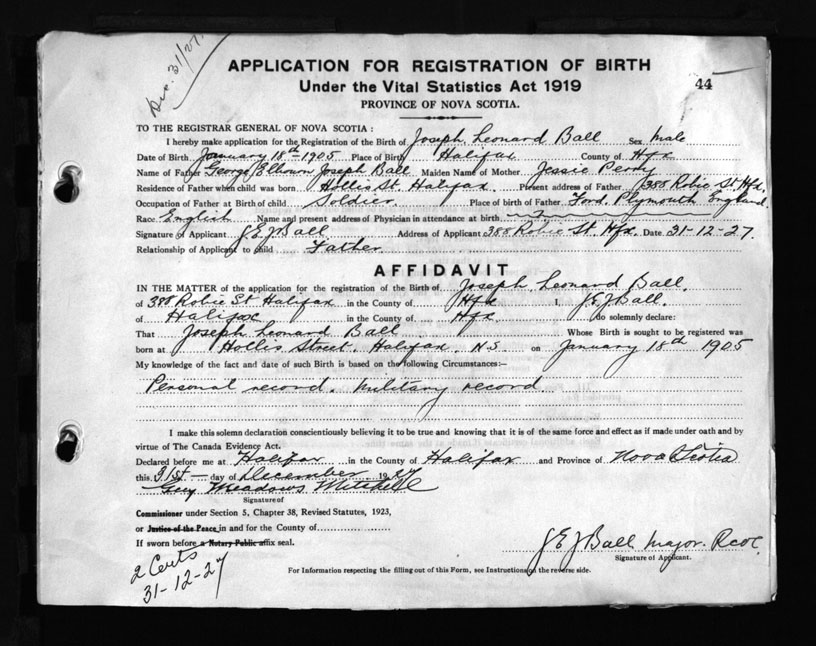 Dec. 31/27.
APPLICATION FOR REGISTRATION OF BIRTH
Under the Vital Statistics Act 1919
44
PROVINCE OF NOVA SCOTIA.
TO THE REGISTRAR GENERAL OF NOVA SCOTIA:
I hereby make application for the Registration of the Birth of Joseph Leonard Ball Sex male
Date of Birth January 18th 1905 Place of Birth Halifax County of Hfx
Name of Father George Joseph Ball Maiden Name of Mother Jessie
Residence of Father when child was born Hollis St. Halifax. Present address of Father 388 Robie St. Hfx.
Occupation of Father at Birth of child Soldier. Place of birth of Father Ford, Plymouth England.
Race English Name and present address of Physician in attendance at birth, ?
Signature of Applicant Ball Address of Applicant 388 Robie St. Hfx. Date 31-12-27.
Relationship of Applicant to child Father
AFFIDAVIT
IN THE MATTER of the application for the registration of the Birth of Joseph Leonard Ball.
of 388 Robie St Halifax in the County of Hfx I, Ball.
of Halifax in the County of Hfx do solemnly declare:
That Joseph Leonard Ball Whose Birth is sought to be registered was
born at Hollis Street, Halifax, N.S on January 18th 1905
My knowledge of the fact and date of such Birth is based on the following Circumstances:—
Personal record. Military record.
I make this solemn declaration conscientiously believing it to be true and knowing that it is of the same force and effect as if made under oath and by
virtue of The Canada Evidence Act.
Declared before me at Halifax in the County of Halifax and Province of Nova Scotia
this 31st day of December 1927
Guy Meadows Mitchell
Signature of
Commissioner under Section 5, Chapter 38, Revised Statutes, 1923,
or Justice of the Peace in and for the County of
If sworn before a Notary Public affix seal.
Ball Major.
Signature of Applicant.
2 Cents
31-12-27
For Information respecting the filling out of this Form, see Instructions on the reverse side.